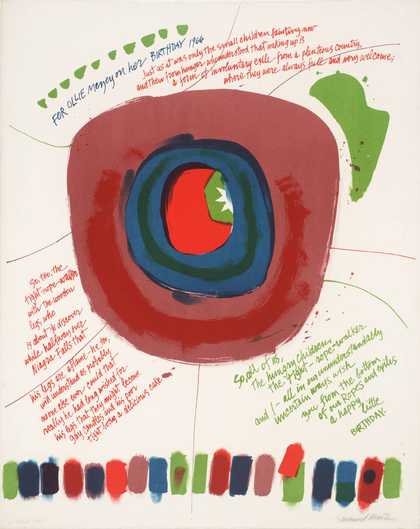 FOR OLLIE Meyey on her BIRTHDAY 1966
Just as it was only the small children fainting now
and then from hunger who understood that waking up is
a form of involuntary exile from a plenteous country
where they were always full and very welcome;
So, too, the
tight-rope-walker
with the wooden
legs who
is about to discover
while halfway over
Niagara Falls that
his legs are aflame – he, too,
will understand as notably
none else ever could that
really he had long wished for
his legs that they might become
gay candles and his poor
tight living a delicious cake
So all of us,
The hungry children,
the tight-rope walker
and I – all in our understandably
uncertain ways wish
you from the bottom
of our Ropes and exiles
a happy
little
BIRTHDAY.